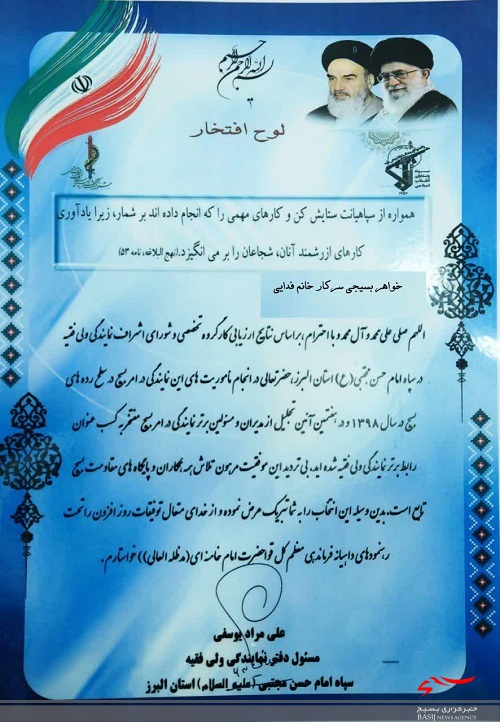 بسم الله الرحمن الرحیم
لوح افتخار
همواره از سپاهیانت ستایش کن و کارهای مهمی را که انجام داده اند بر شمار، زیرا یادآوری
کارهای ارزشمند آنان، شجاعان را بر می انگیزد.(نهج البلاغه، نامه ۵۳)
خواهر بسیجی سرکار خانم فدایی
اللهم صلی علی محمد و آل محمد و با احترام، براساس نتایج ارزیابی کارگروه تخصصی و شورای اشراف نمایندگی ولی فقیه
در سپاه امام حسن مجتبی(ع) استان البرز، حضرتعالی در انجام مأموریت های این نمایندگی در امر بسیج در سطح رده های
بسیج در سال ۱۳۹۸ و در هفتمین آئین تجلیل از مدیران و مسئولین برتر نمایندگی در امر بسیج مفتخر به کسب عنوان
رابط برتر نمایندگی ولی فقیه شده اید. بی تردید این موفقیت مرهون تلاش همه همکاران و پایگاه های مقاومت بسیج
تابع است، بدین وسیله این انتخاب را به شما تبریک عرض نموده و از خدای متعال توفیقات روز افزون را تحت
رهنمودهای داهیانه فرماندهی معظم کل قوا حضرت امام خامنه ای(مدظله العالی)) خواستارم.
علی مراد یوسفی
مسئول دفتر نمایندگی ولی فقیه
سپاه امام حسن مجتبی (علیه السلام) استان البرز
خبرگزاری بسیج
BASIJ NEWS AGENCY